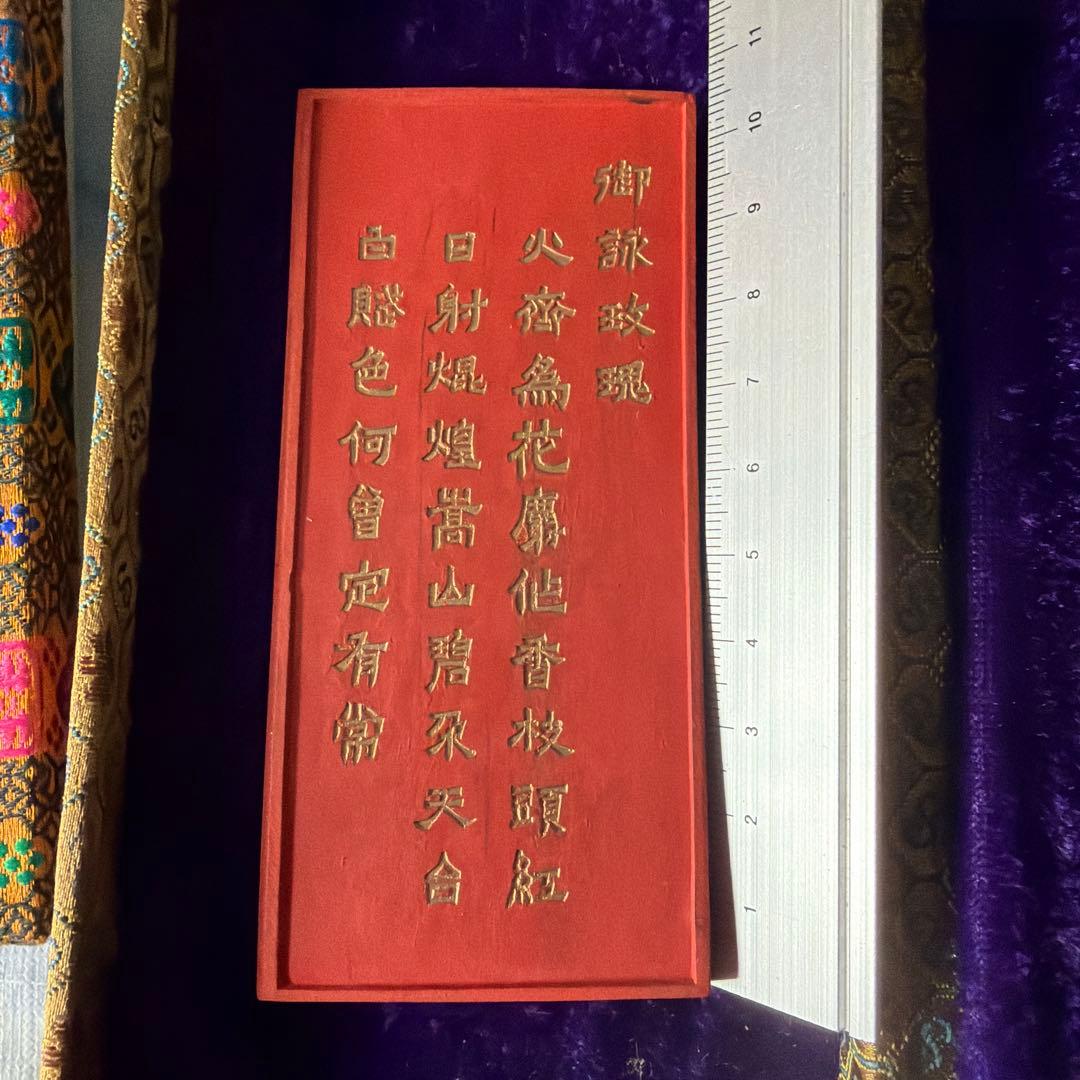 御詠玫瑰
火齊為花麝作香枝頭紅
日射焜煌嵩山碧朶天台
白賦色何曾定有常
11
10
9
8
7
6
5
4
3
2
1